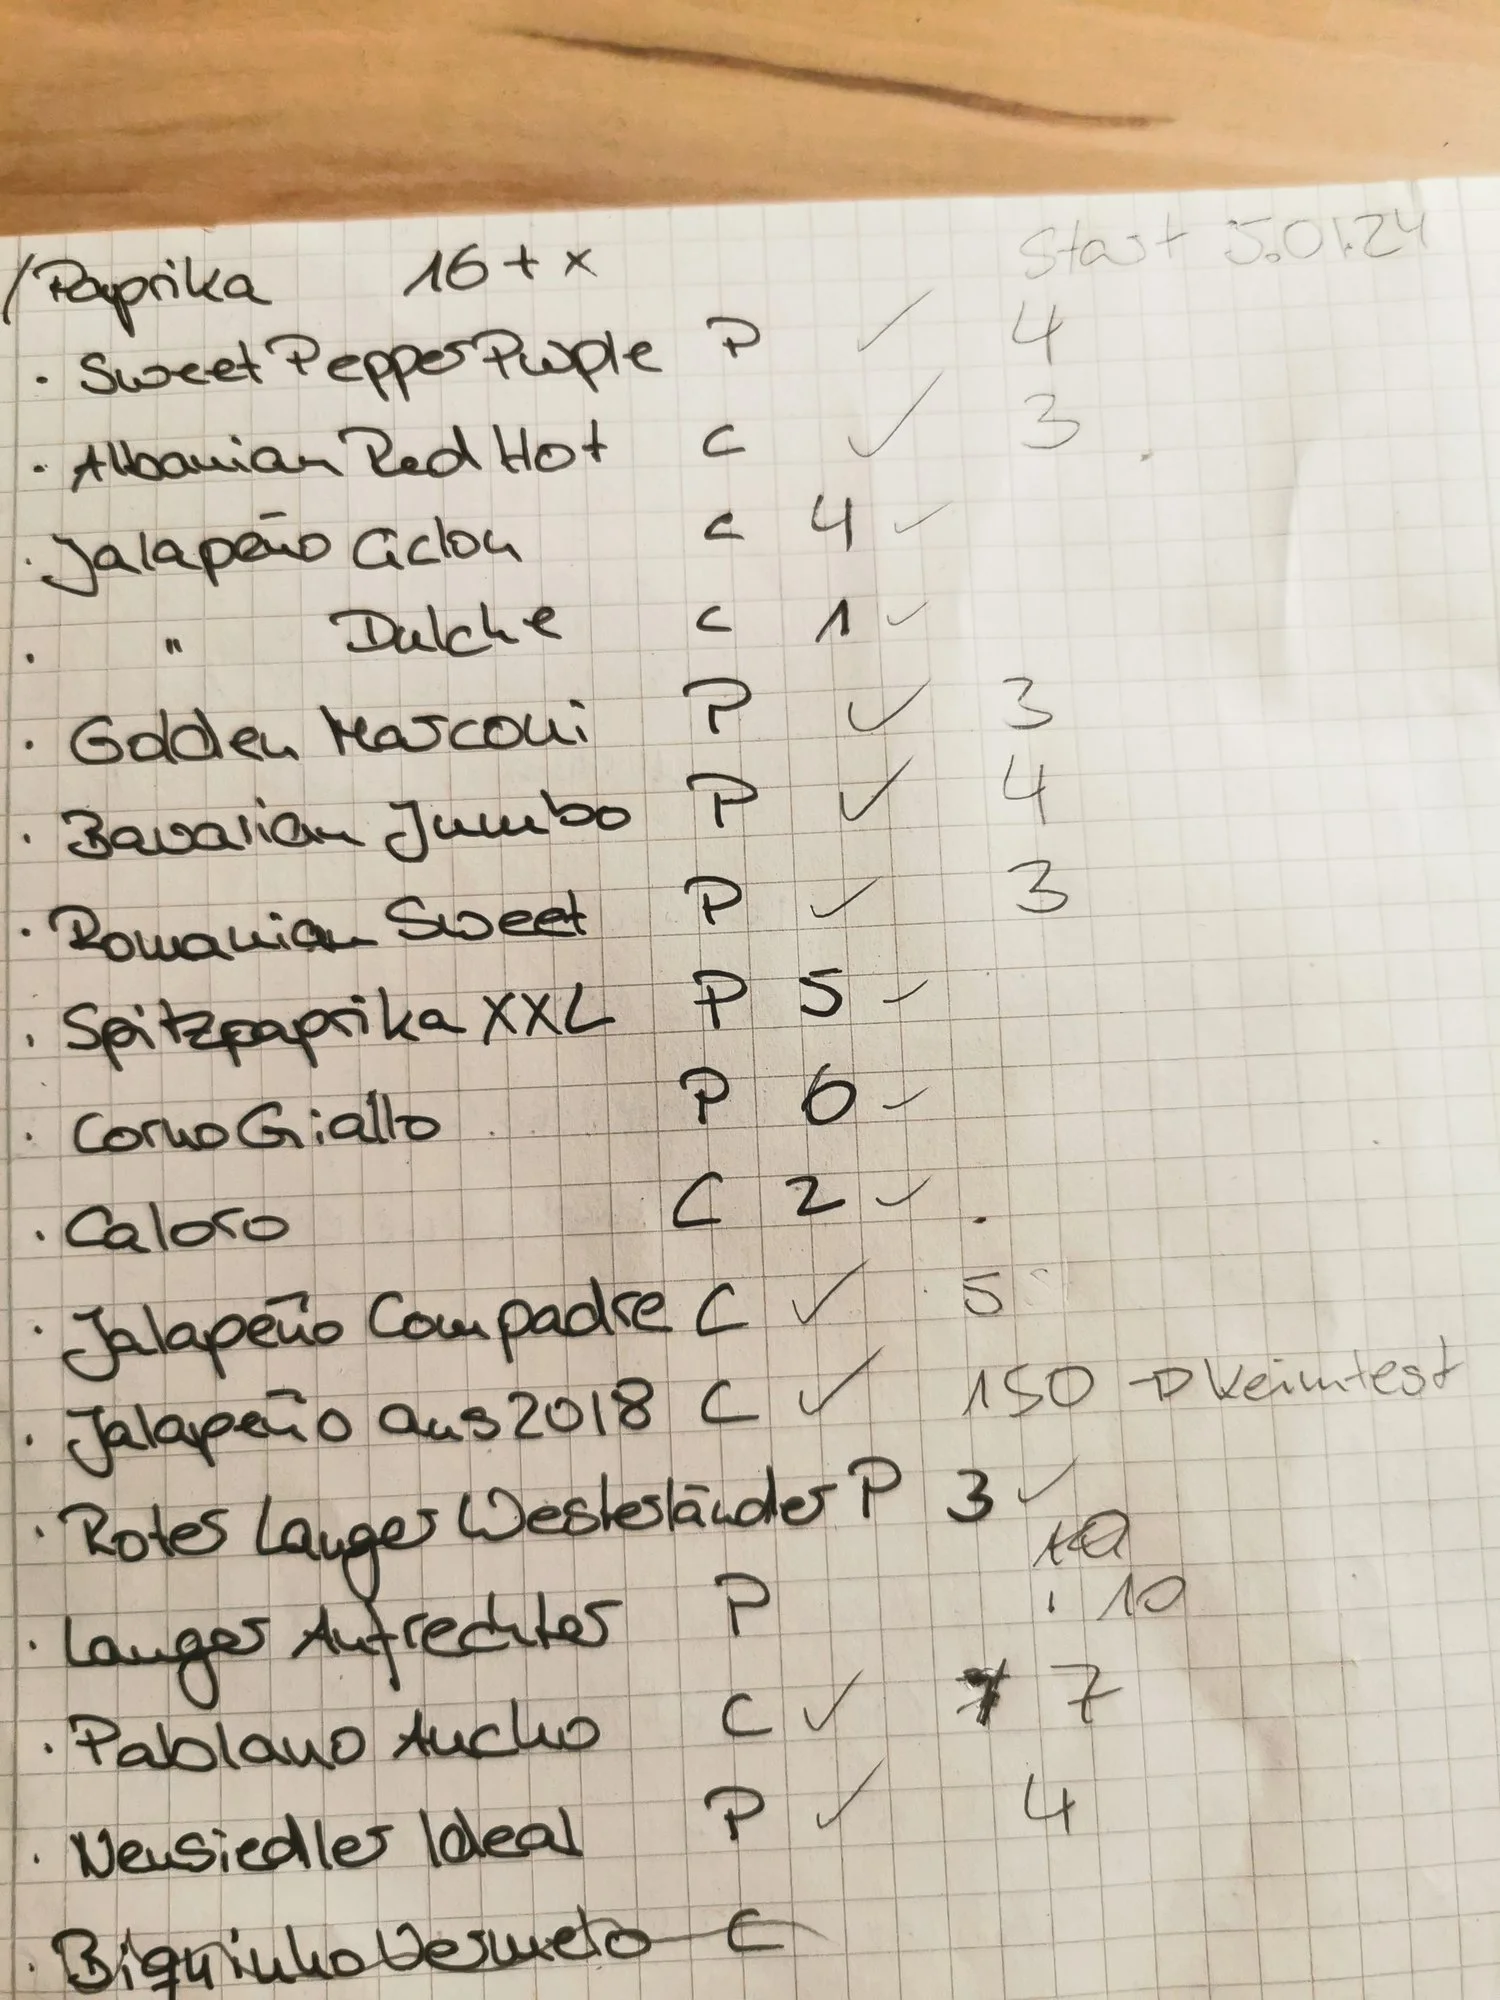 /Paprika 16 + x Start 5.01.24
· Sweet Pepper Purple P ✓ 4
· Albanian Red Hot C ✓ 3
· Jalapeño Ciclon C 4 ✓
· " Dulche C 1 ✓
· Golden Marconi P ✓ 3
· Bavarian Jumbo P ✓ 4
· Romanian Sweet P ✓ 3
· Spitzpaprika XXL P 5 ✓
· Corno Giallo P 6 ✓
· Caloro C 2 ✓
· Jalapeño Compadre C ✓ 5
· Jalapeño aus 2018 C ✓ 150 → Keimtest
· Roter Langer Westerländer P 3 ✓
· Langer Aufrechter P 10
· Pablano Ancho C ✓ 7
· Neusiedler Ideal P ✓ 4
· Biquinho Vermelo C